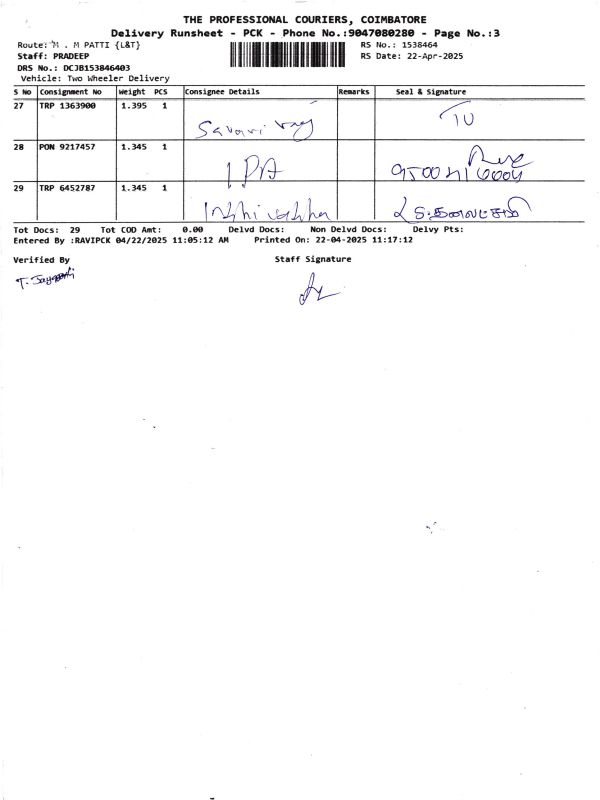 THE PROFESSIONAL COURIERS, COIMBATORE
Delivery Runsheet - PCK - Phone No.:9047080280 - Page No.:3
Route: M . M PATTI {L&T} RS No.: 1538464
Staff: PRADEEP RS Date: 22-Apr-2025
DRS No.: DCJB153846403
Vehicle: Two Wheeler Delivery
S No Consignment No Weight PCS Consignee Details Remarks Seal & Signature
27 TRP 1363900 1.395 1
Savari raj
28 PON 9217457 1.345 1
29 TRP 6452787 1.345 1
Tot Docs: 29 Tot COD Amt: 0.00 Delvd Docs: Non Delvd Docs: Delvy Pts:
Entered By :RAVIPCK 04/22/2025 11:05:12 AM Printed On: 22-04-2025 11:17:12
Verified By Staff Signature